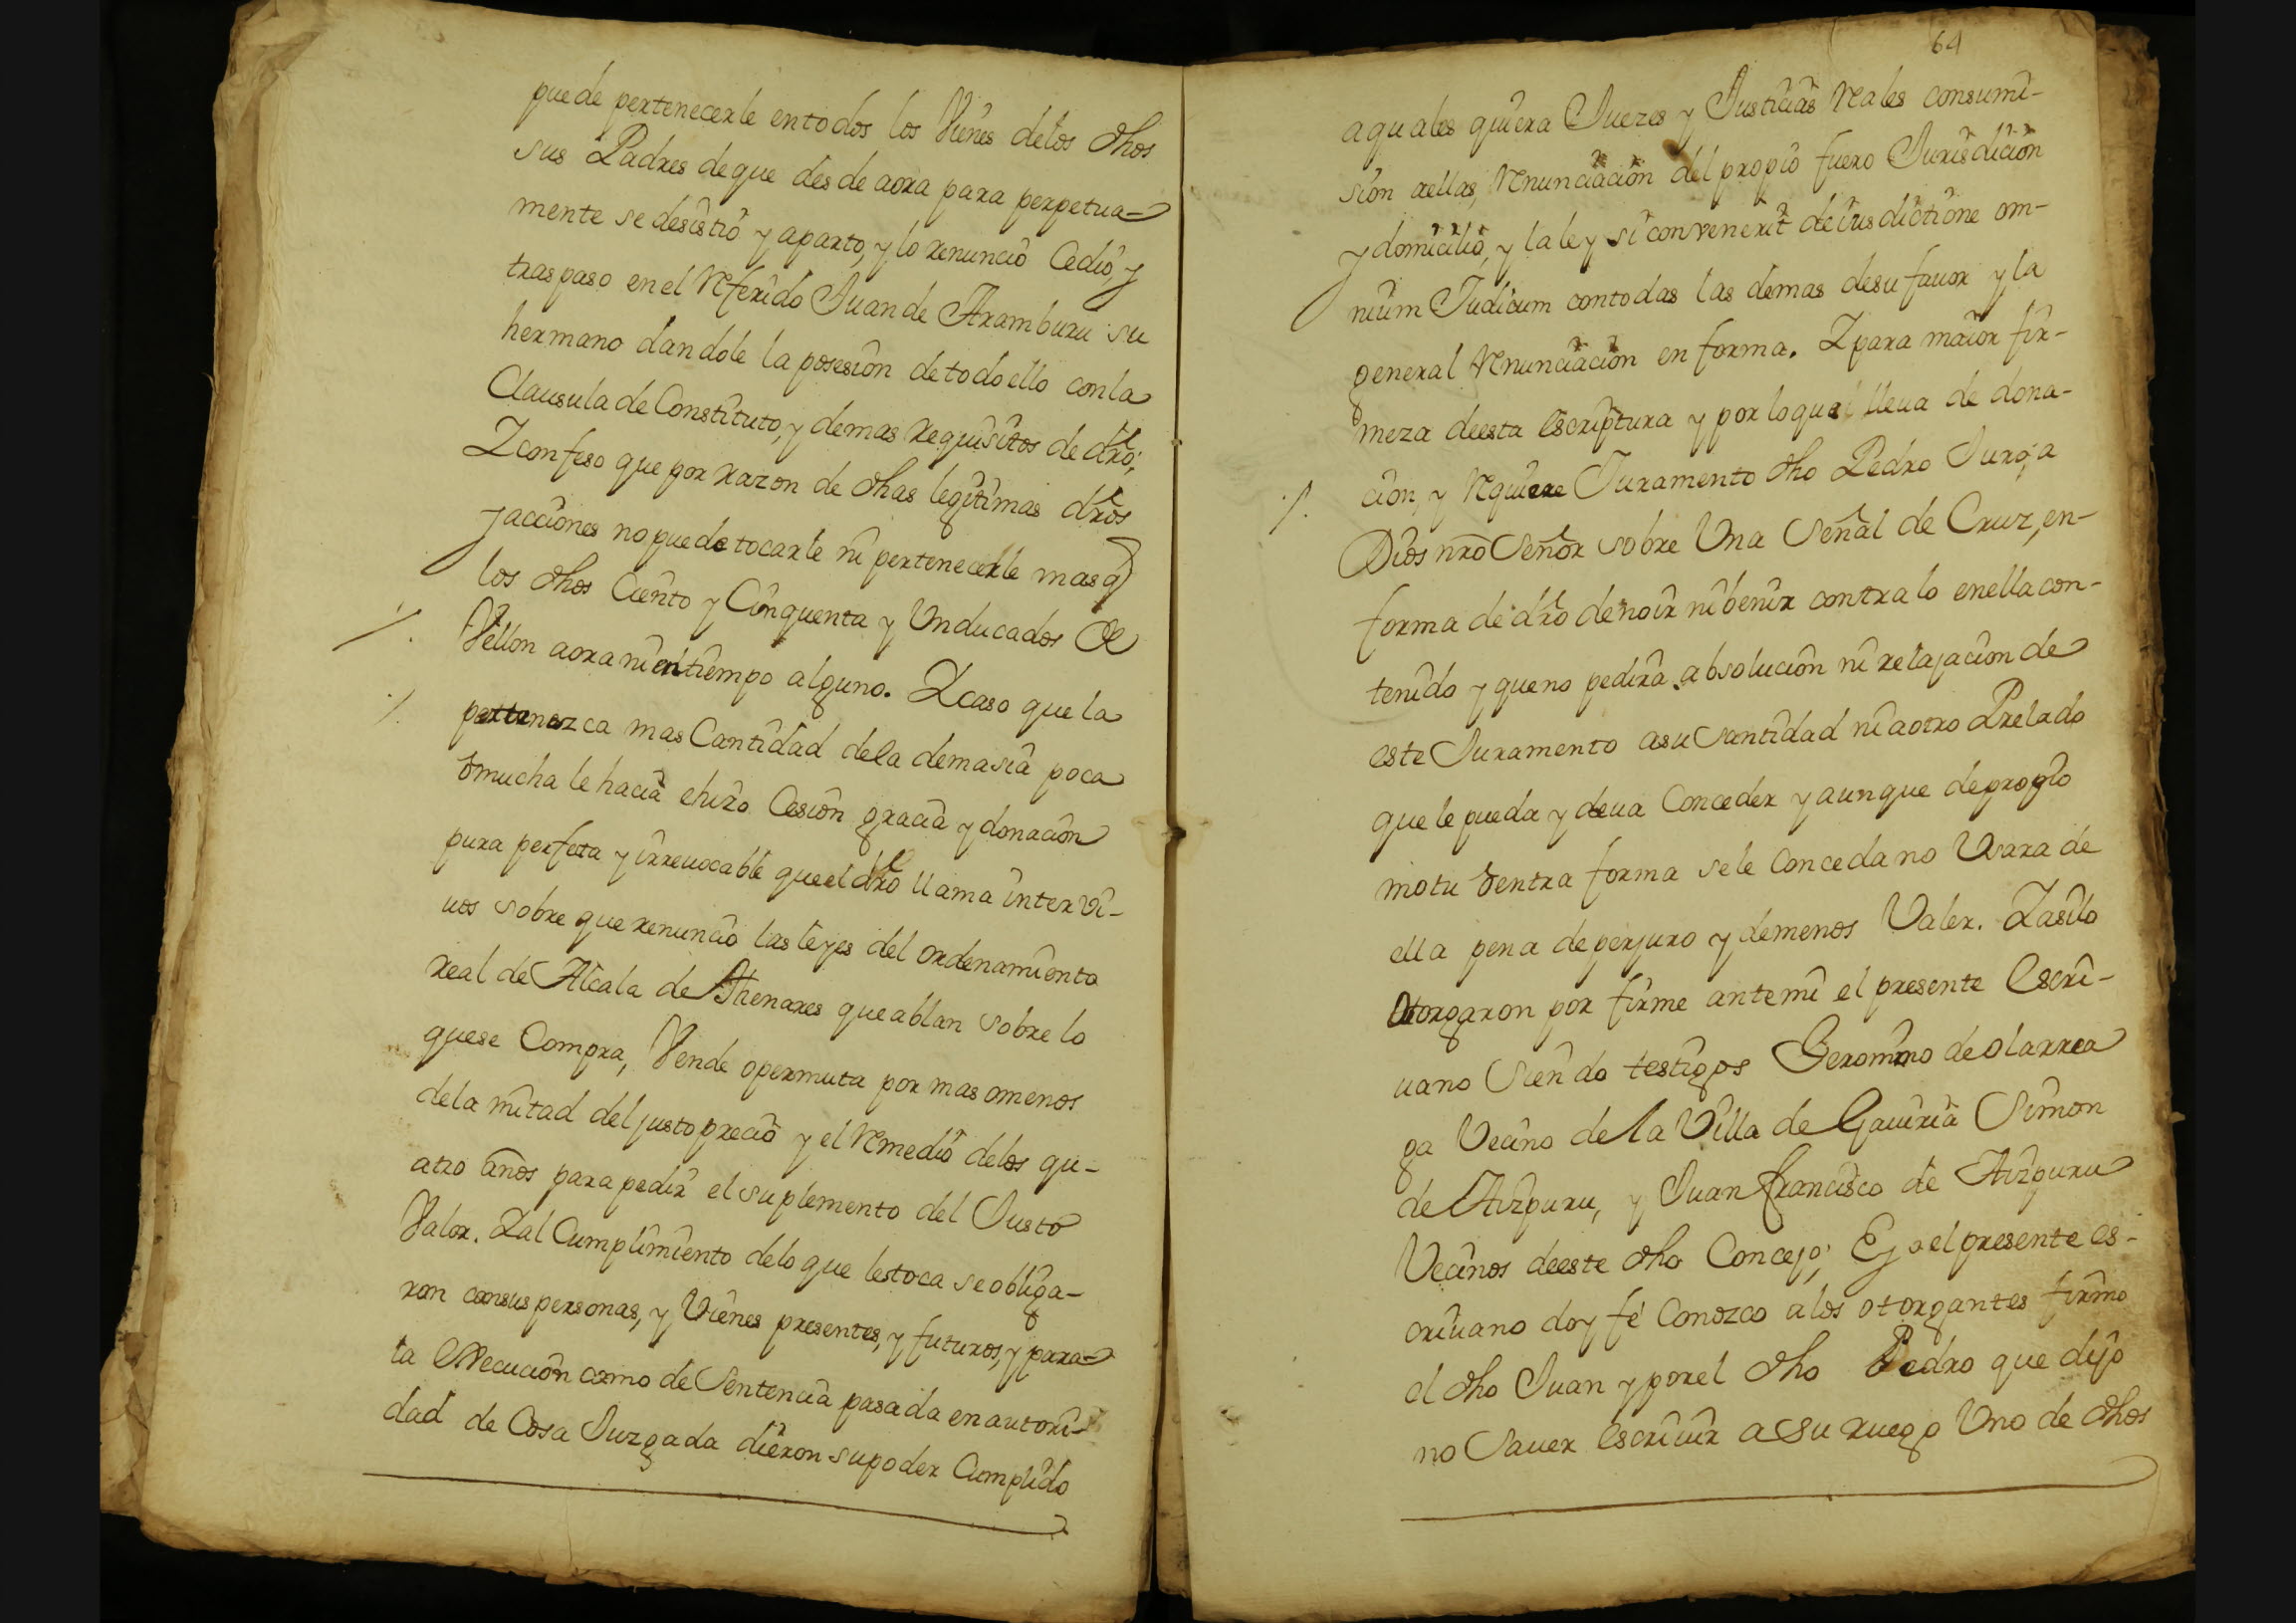 puede pertenecerle en todos los Vienes delos dhos
sus Padres de que desde aora para perpetua-
mente se desistio y aparto, y lo renuncio Cedio, y
traspaso en el Referido Juan de Aramburu su
hermano dandole la posesion de todo ello con la
Clausula de Constituto, y demas requisitos de dro;
Y confeso que por razon de dhas legitimas dros
y acciones no puede tocarle ni pertenecerle mas q
los dhos Ciento y Cinquenta y Un ducados de
Vellon aora ni en tiempo alguno. Y caso que la
pertenezca mas Cantidad de la demasia poca
o mucha le hacia e hizo Cesion gracia y donacion
pura perfeta y irreuocable que el dro llama inter vi-
uos sobre que renuncio las leyes del ordenamiento
real de Alcala de Henares que ablan sobre lo
que se Compra, Vende o permuta por mas o menos
de la mitad del justo precio y el Remedio delos qu-
atro años para pedir el suplemento del Justo
Valor. Y al Cumplimiento de lo que les toca se obliga-
ron con sus personas, y Vienes presentes, y futuros, y para
la execucion como de Sentencia pasada en autori-
dad de Cosa Juzgada dieron su poder Cumplido
64
a quales quiera Juezes y Justicias Reales con sumi-
sion a ellas, Renunciacion del propio fuero Jurisdicion
y domicilio, y la ley si convenerit de iurisdictione om-
nium Judicum con todas las demas de su fauor y la
general Renunciacion en forma. Y para maior fir-
meza de esta escriptura y por lo que lleua de dona-
cion, y Requiere Juramento dho Pedro Juro, a
Dios nro Señor sobre Una Señal de Cruz, en-
forma de dro de no ir ni benir contra lo en ella con-
tenido y que no pedira absolucion ni relajacion de
este Juramento a su Santidad ni a otro Prelado
que le pueda y deua Conceder y aunque de propio
motu o en tra forma se le conceda no Vsara de
ella pena de perjuro y de menos Valer. Y asi lo
otorgaron por firme ante mi el presente Escri-
uano Siendo testigos Geronimo de olarrea
ga Vecino de la Villa de Gauiria Simon
de Aizpuru, y Juan francisco de Aizpuru
Vecinos de este dho Concejo; E yo el presente es-
criuano doy fé Conozco a los otorgantes firmo
el dho Juan y por el dho Pedro que dijo
no Sauer escriuir a su ruego Uno de dhos